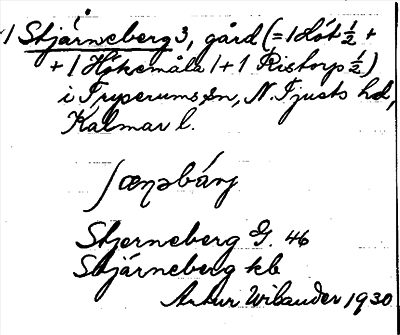 1 Stjärneberg 3, gård (= 1 Höt ½ +
+ 1 Hökemåla 1 + 1 Ristorp ½)
i Tryserums sn, N. Tjusts hd,
Kalmar l.
ʃæɳəbárj
Stjerneberg G. 46
Stjärneberg kb
Artur Wibander 1930